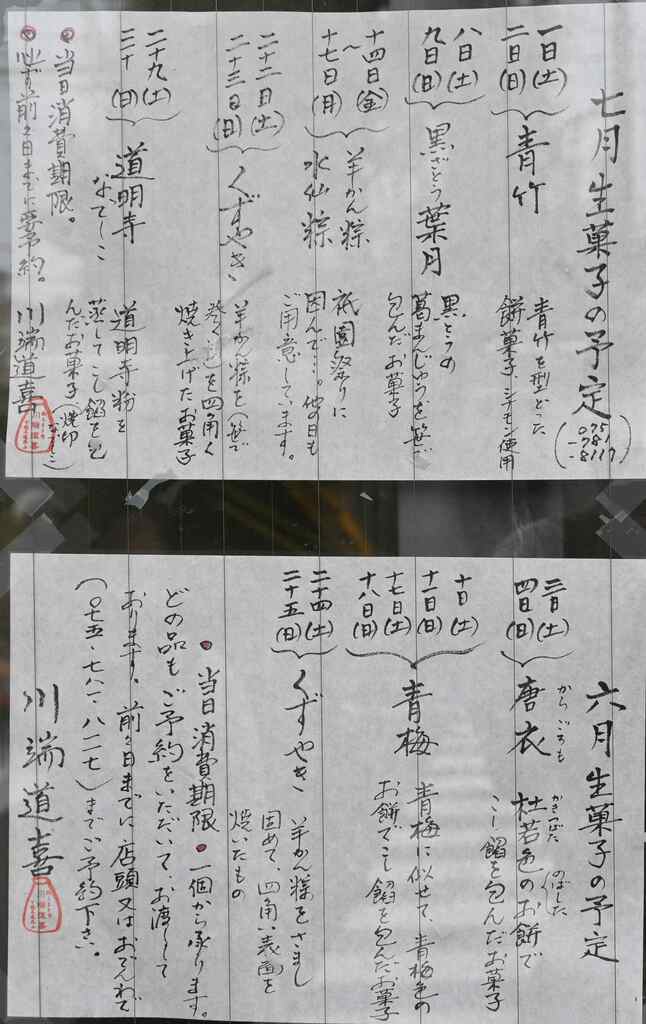 七月生菓子の予定
(075
-781
-8117)
一日(土)
二日(日)
青竹
青竹を型どった
餅菓子、シナモン使用
八日(土)
九日(日)
黒ざとう葉月
黒とうの
葛まんじゅうを笹で
包んだお菓子
十四日(金)
〜
十七日(月)
羊かん粽
水仙粽
祇園祭りに
因んで…。他の日も
ご用意しています。
二十二日(土)
二十三日(日)
くずやき
羊かん粽を(笹で
巻く迄)を四角く
焼き上げたお菓子
二十九(土)
三十(日)
道明寺
なでしこ
道明寺粉を
蒸してこし餡を包
んだお菓子(焼印
なでしこ)
当日消費期限。
必ず前々日までに要予約。
川端道喜
六月生菓子の予定
三日(土)
四日(日)
からごろも
唐衣
かきつばた のばした
杜若色のお餅で
こし餡を包んだお菓子
十日(土)
十一日(日)
十七日(土)
十八日(日)
青梅
青梅に似せて、青梅色の
お餅でこし餡を包んだお菓子
二十四(土)
二十五(日)
くずやき
羊かん粽をさまし
固めて、四角い表面を
焼いたもの
当日消費期限 一個から承ります。
どの品もご予約をいただいて、お渡しして
おります、前々日までに店頭又はおでんわで
(〇七五・七八一・八一一七)までご予約下さい。
川端道喜